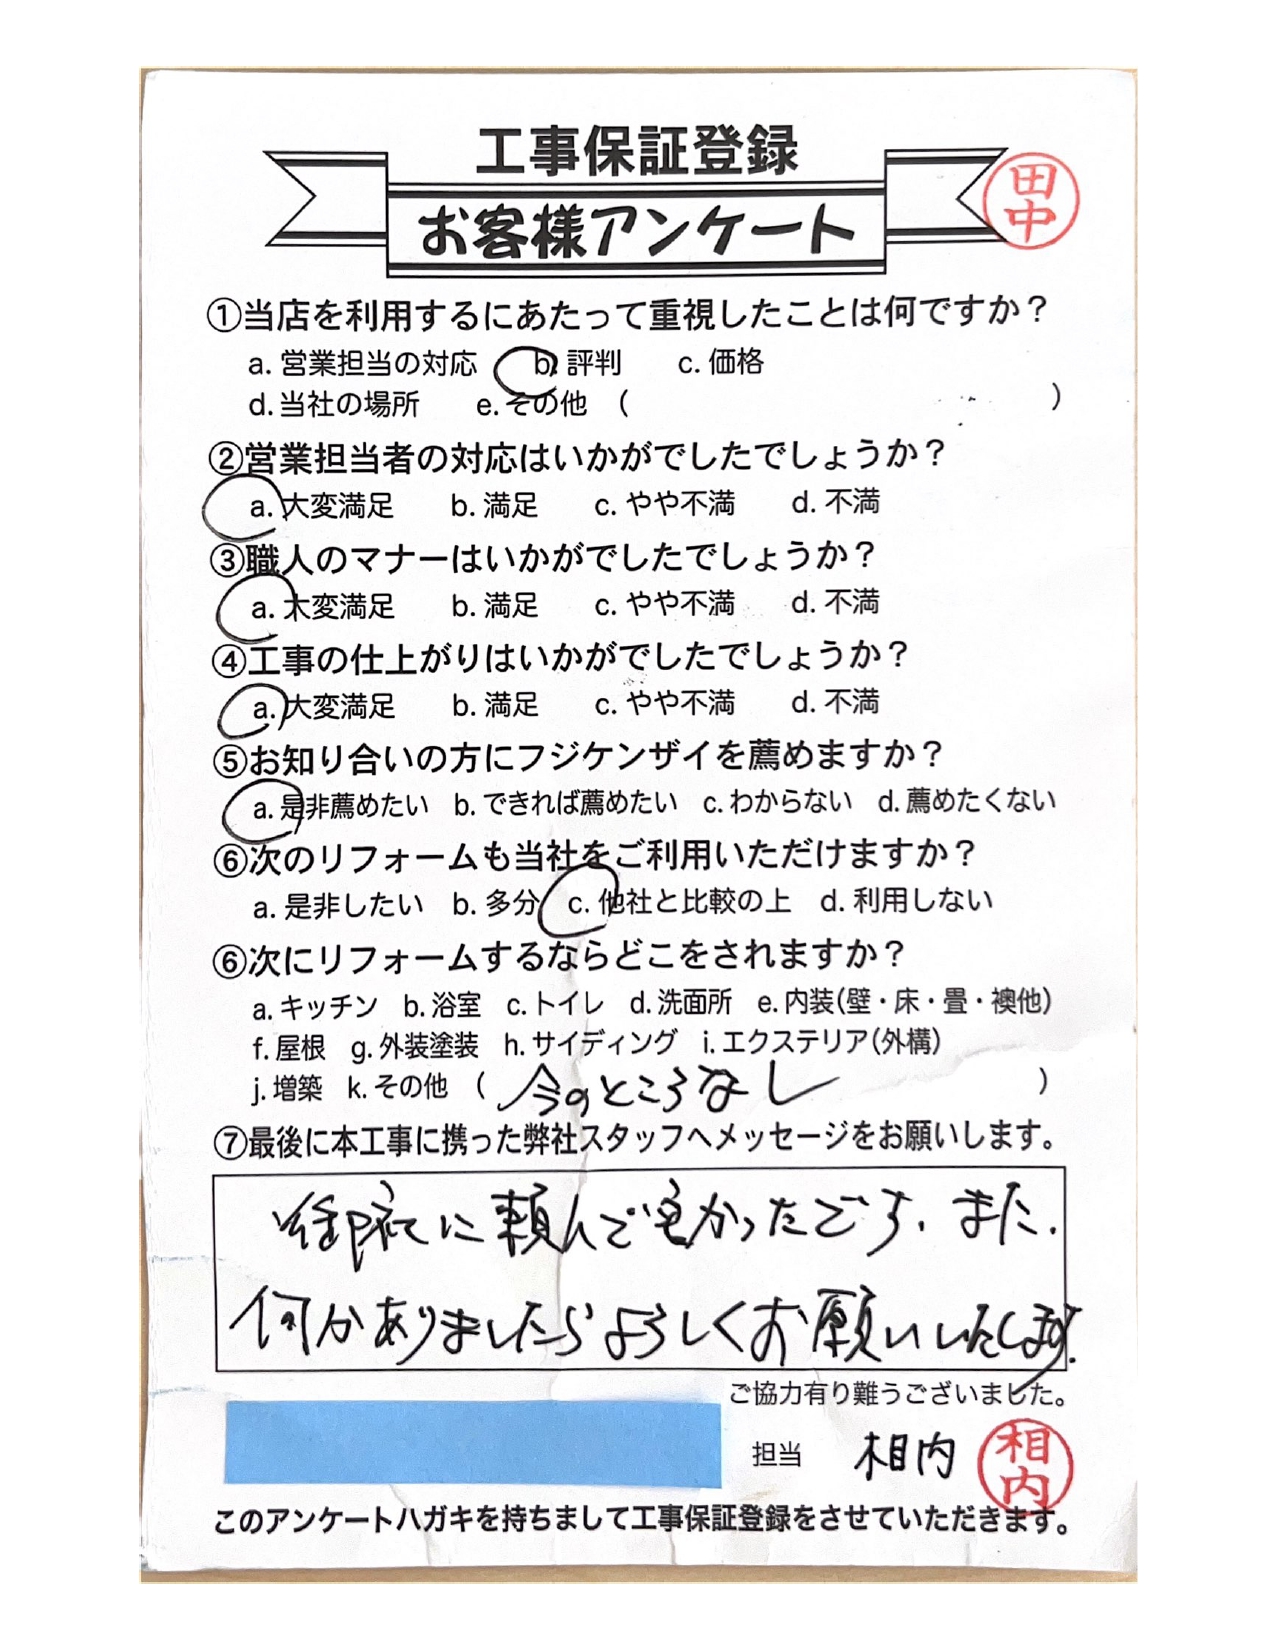 工事保証登録
お客様アンケート
田中
①当店を利用するにあたって重視したことは何ですか？
a. 営業担当の対応 b. 評判 c. 価格
d. 当社の場所 e. その他 ( )
②営業担当者の対応はいかがでしたでしょうか？
a. 大変満足 b. 満足 c. やや不満 d. 不満
③職人のマナーはいかがでしたでしょうか？
a. 大変満足 b. 満足 c. やや不満 d. 不満
④工事の仕上がりはいかがでしたでしょうか？
a. 大変満足 b. 満足 c. やや不満 d. 不満
⑤お知り合いの方にフジケンザイを薦めますか？
a. 是非薦めたい b. できれば薦めたい c. わからない d. 薦めたくない
⑥次のリフォームも当社をご利用いただけますか？
a. 是非したい b. 多分 c. 他社と比較の上 d. 利用しない
⑥次にリフォームするならどこをされますか？
a. キッチン b. 浴室 c. トイレ d. 洗面所 e. 内装(壁・床・畳・襖他)
f. 屋根 g. 外装塗装 h. サイディング i. エクステリア(外構)
j. 増築 k. その他 ( 今のところなし )
⑦最後に本工事に携った弊社スタッフへメッセージをお願いします。
御社に頼んで良かったです、また、
何かありましたらよろしくお願いいたします.
ご協力有り難うございました。
担当 相内 相内
このアンケートハガキを持ちまして工事保証登録をさせていただきます。